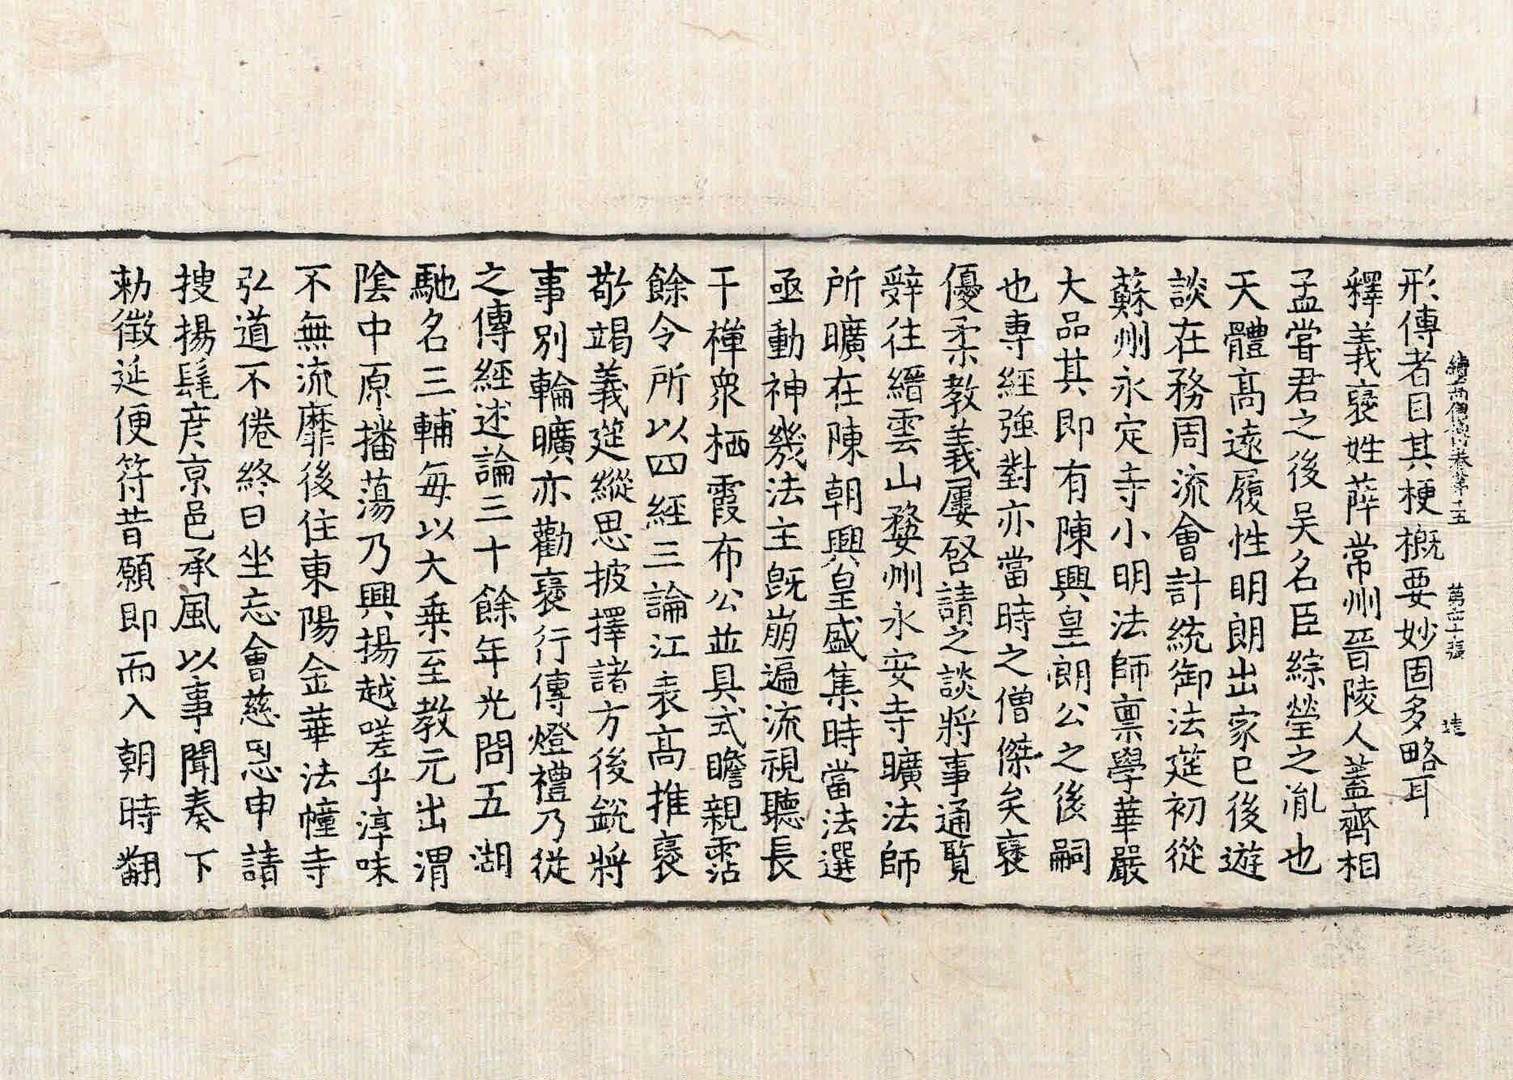 續高僧傳卷第十五 第 張
形傳者目其梗槪要妙固多略耳
釋義襃姓薛常州晉陵人蓋齊相
孟嘗君之後吳名臣綜瑩之胤也
天體高遠履性明朗出家已後遊
談在務周流會計統御法筵初從
蘇州永定寺小明法師稟學華嚴
大品其即有陳興皇朗公之後嗣
也專經強對亦當時之僧傑矣襃
優柔教義屢啓請之談將事通覽
辤往縉雲山婺州永安寺曠法師
所曠在陳朝興皇盛集時當法選
亟動神幾法主旣崩遍流視聽長
干禪衆栖霞布公並具式瞻親霑
餘令所以四經三論江表高推襃
敬竭義筵縱思披擇諸方後銳將
事別輪曠亦勸襃行傳燈禮乃從
之傳經述論三十餘年光問五湖
馳名三輔每以大乘至教元出渭
陰中原播蕩乃興揚越嗟乎淳味
不無流靡後住東陽金華法幢寺
弘道不倦終日坐忘會慈恩申請
搜揚髦彥京邑承風以事聞奏下
勑徵延便符昔願即而入朝時翻